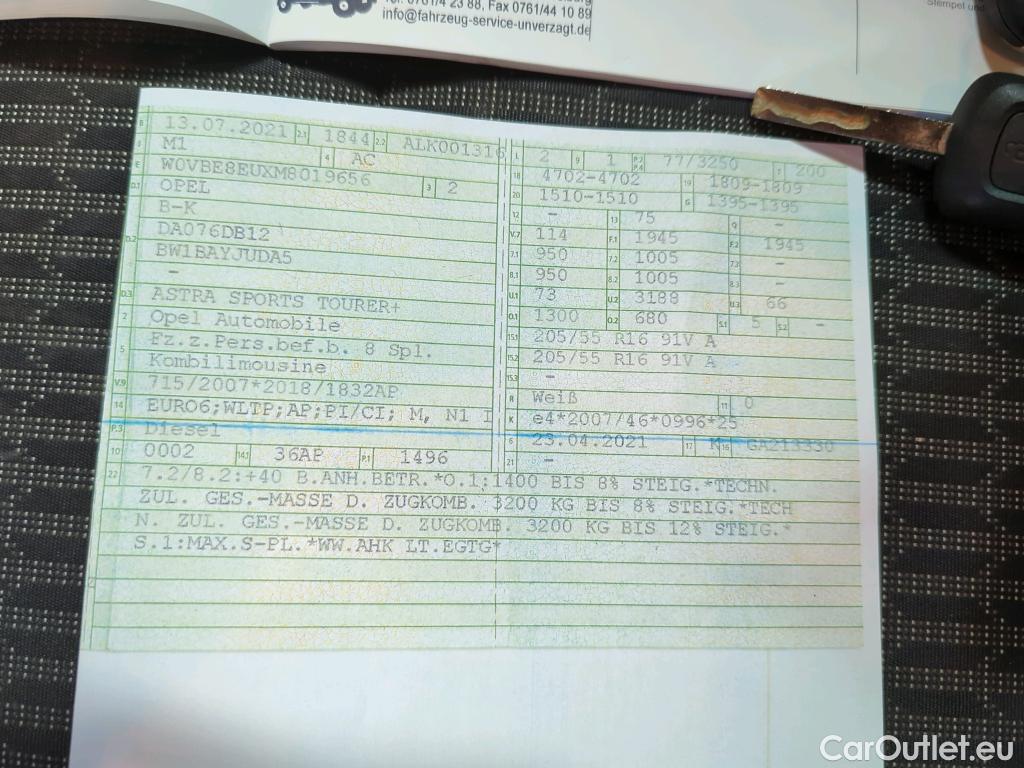 Fax 0761/44 10 89
info@fahrzeug-service-unverzagt.de
Stempel und
B 13.07.2021 2.1 1844 2.2 ALK001316
J M1 4 AC
E W0VBE8EUXM8019656 3 2
D.1 OPEL
B-K
D.2 DA076DB12
BW1BAYJUDA5
-
D.3 ASTRA SPORTS TOURER+
2 Opel Automobile
5 Fz.z.Pers.bef.b. 8 Spl.
Kombilimousine
V.9 715/2007*2018/1832AP
14 EURO6;WLTP;AP;PI/CI; M, N1 I
P.3 Diesel
10 0002 14.1 36AP P.1 1496
L 2 9 1 P.2 P.4 77/3250 T 200
18 4702-4702 19 1809-1809
20 1510-1510 G 1395-1395
12 - 13 75 Q -
V.7 114 F.1 1945 F.2 1945
7.1 950 7.2 1005 7.3 -
8.1 950 8.2 1005 8.3 -
U.1 73 U.2 3188 U.3 66
O.1 1300 O.2 680 S.1 5 S.2 -
15.1 205/55 R16 91V A
15.2 205/55 R16 91V A
15.3 -
R Weiß 11 0
K e4*2007/46*0996*25
6 23.04.2021 17 K 16 GA213330
21 -
22 7.2/8.2:+40 B.ANH.BETR.*O.1:1400 BIS 8% STEIG.*TECHN.
ZUL. GES.-MASSE D. ZUGKOMB. 3200 KG BIS 8% STEIG.*TECH
N. ZUL. GES.-MASSE D. ZUGKOMB. 3200 KG BIS 12% STEIG.*
S.1:MAX.S-PL.*WW.AHK LT.EGTG*
CarOutlet.eu